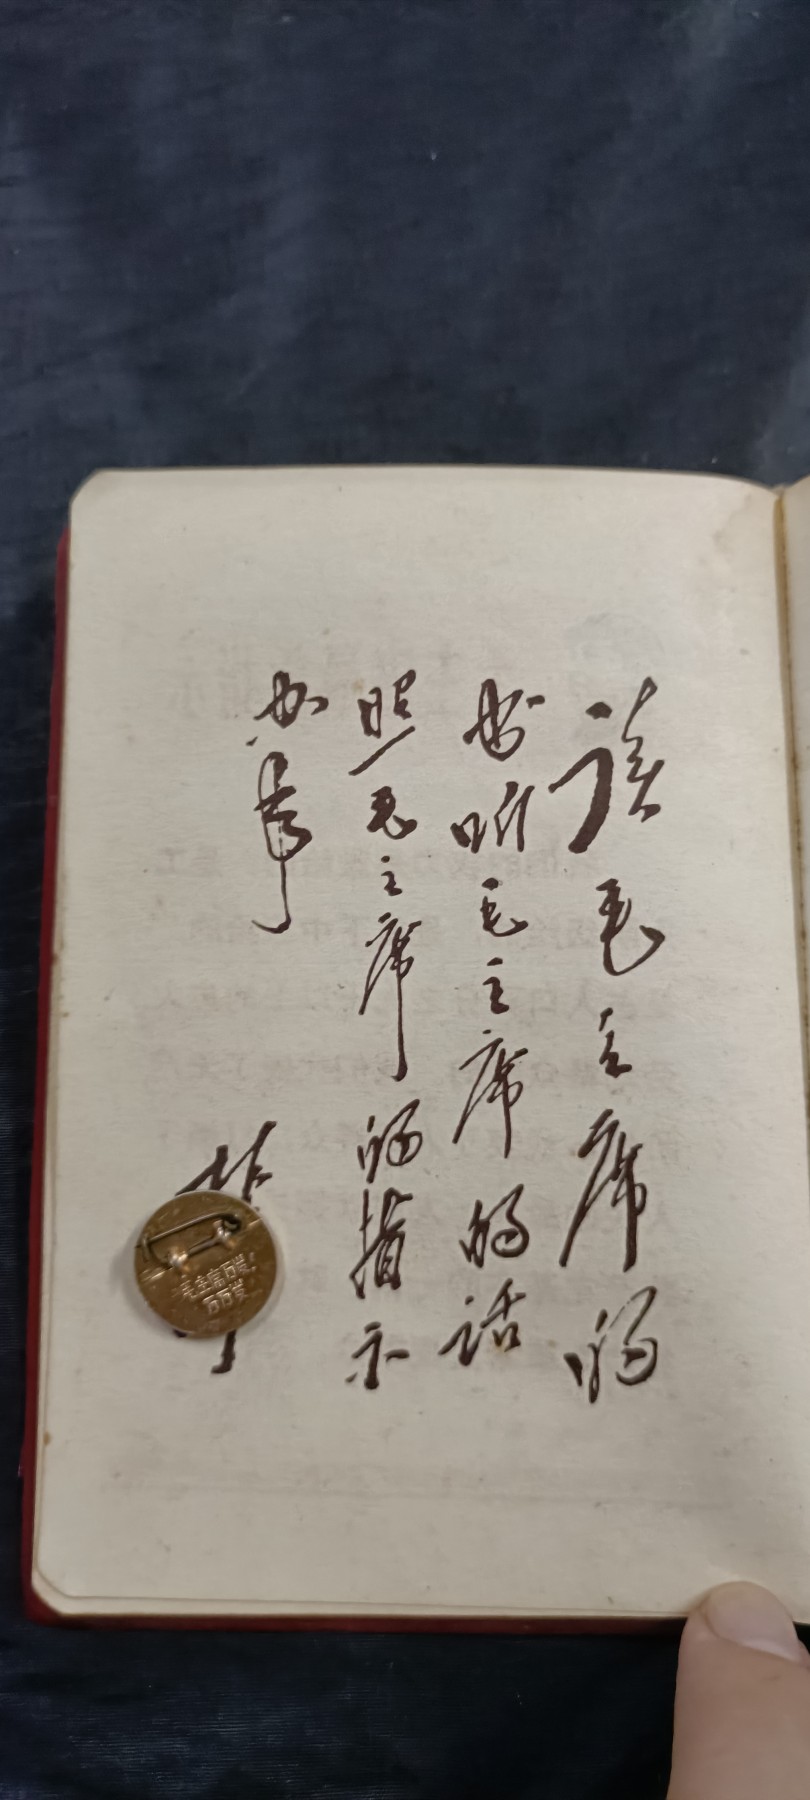 读毛主席的
书听毛主席的话
照毛主席的指示
办事
毛主席万岁!
万万岁